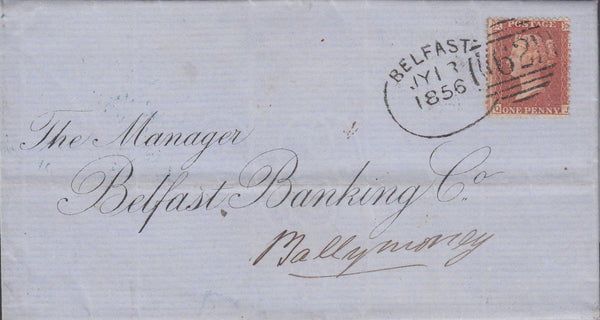 BELFAST
JY 1
1856
62
POSTAGE
ONE PENNY
The Manager
Belfast Banking Co.
Ballymoney